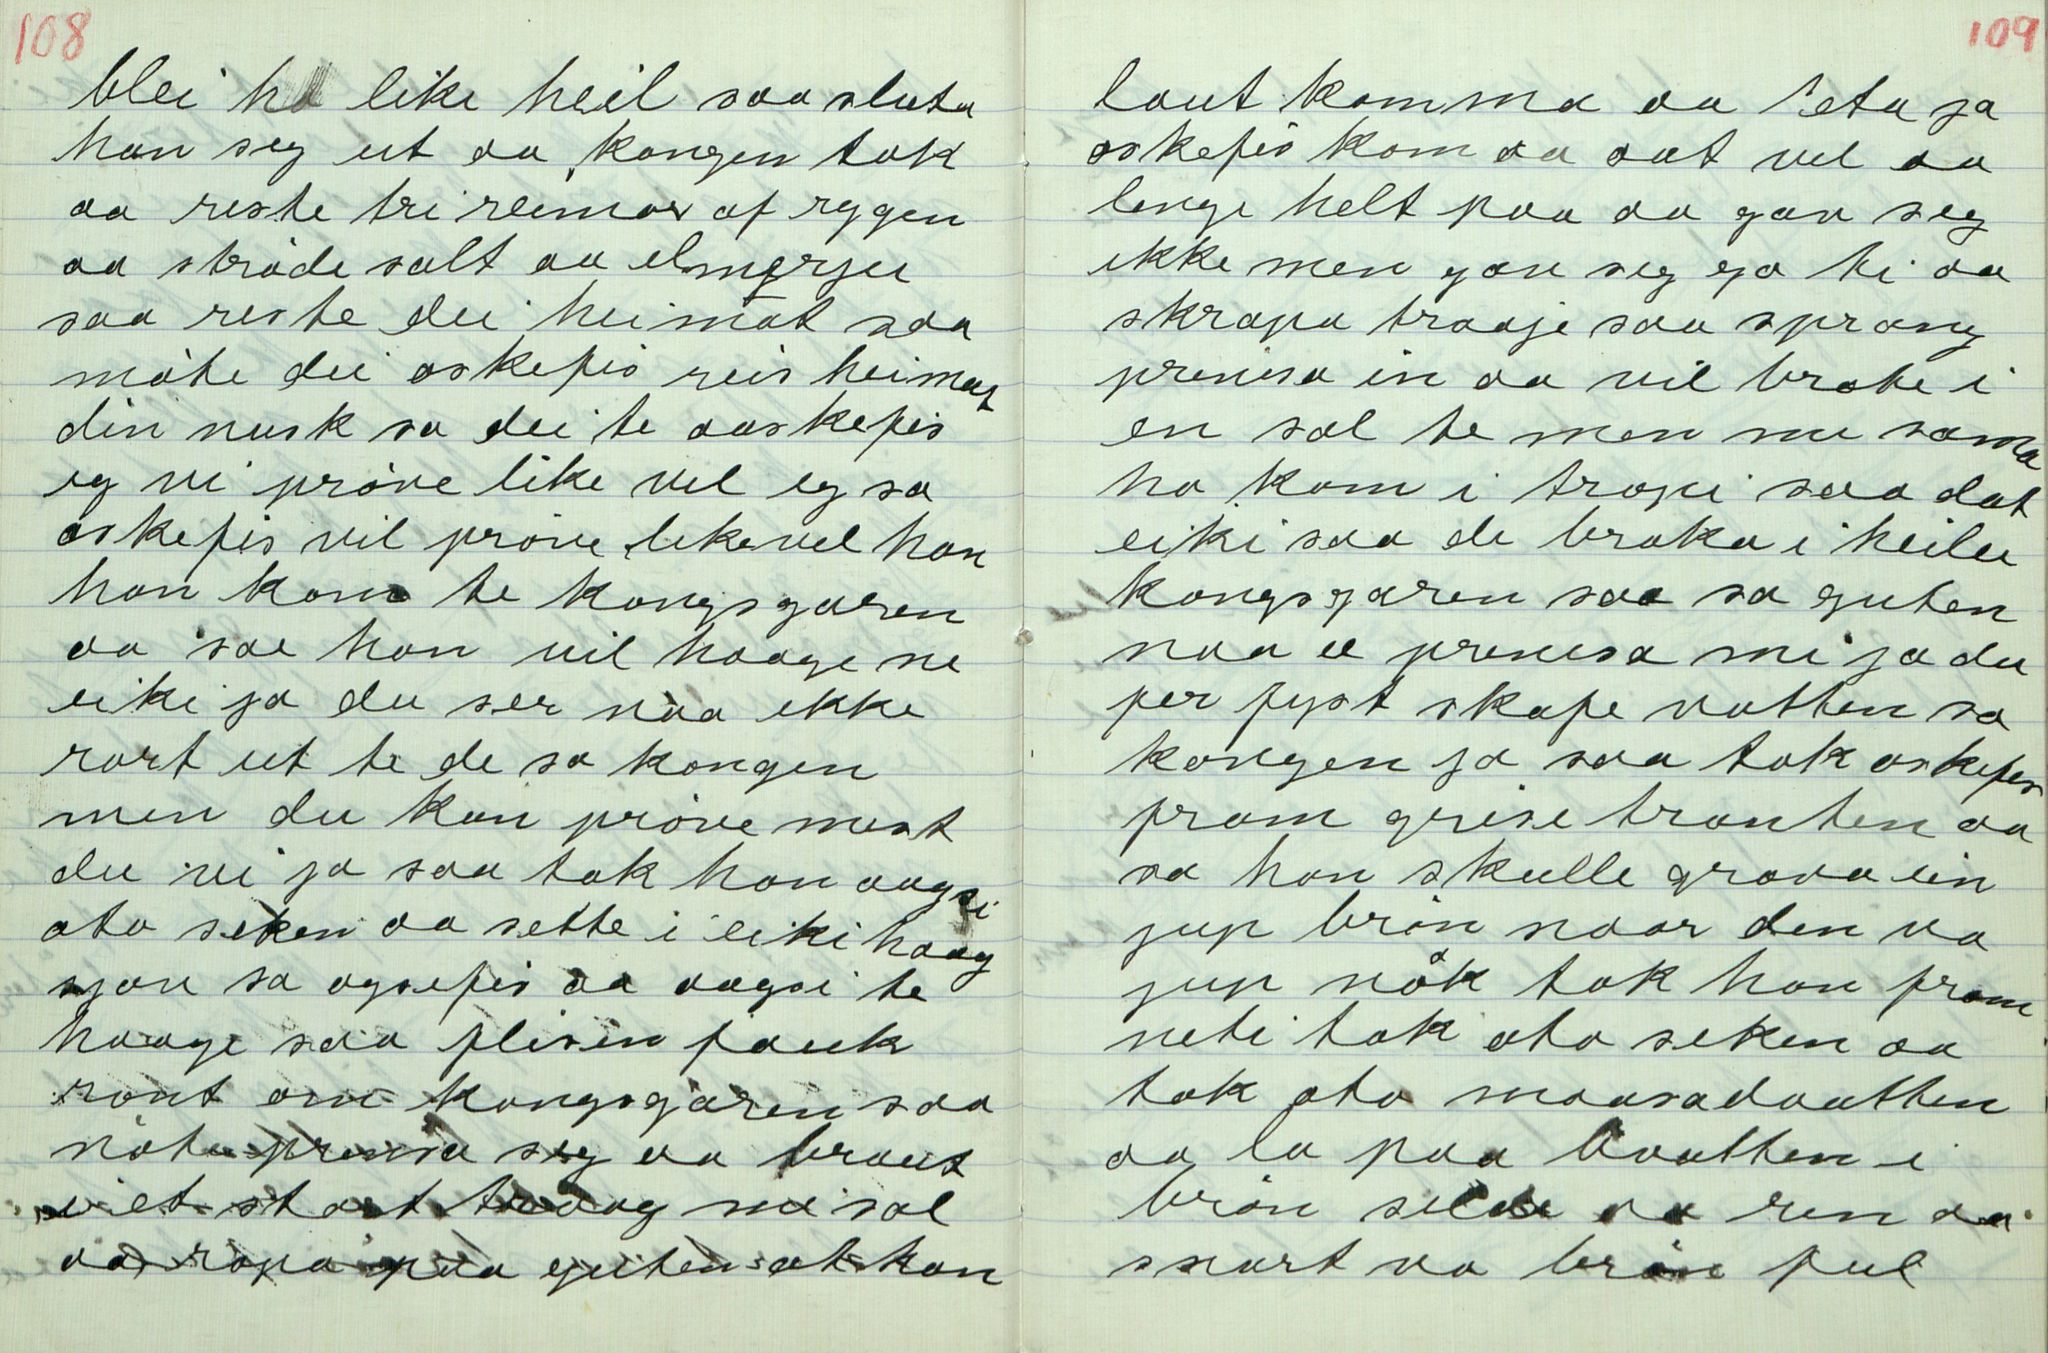 108
blei ho like heil saa sluta
han seg ut aa kongen tok
aa riste tri reimar af rygen
aa ströde salt aa elmyrju
saa reste dei heimat saa
möte dei oskefis reis heimat
din nusk sa dei te aaskefis
eg vi pröve like vel eg sa
oskefis vil pröve likevel han
han kom te kongsgaren
aa sae han vil haage ne
eiki ja du ser naa ikke
rart ut te de sa kongen
men du kan pröve mest
du vi ja saa tok han aagsi
ato seken aa sette i eiki haag
sjøu sa ogsefis aa aagsi te
haage saa flisen fauk
ront om kongsgaren saa
nöta prinsa seg aa braut
eiet start traag me sol
aa ropa paa guten at han
109
laut komma aa eta ja
oskefis kom aa aat vel aa
lenge helt paa aa gav seg
ikke men gav seg ga ti aa
skrapa traaje saa sprang
prinsa in aa vil brote i
en sol te men me sama
ho kom i trapi saa dat
eiki saa de braka i heile
kongsgaren saa sa guten
naa e prinsesa mi ja du
fer fyst skafe vatten sa
kongen ja saa tok oskefis
fram grise tranten aa
sa han skulle grava ein
jup brön naar den va
jup nåk tok han fram
neti tok ato seken aa
tok ato maasadautten
aa la paa baatten i
brön selde aa ren aa
snart va brön ful